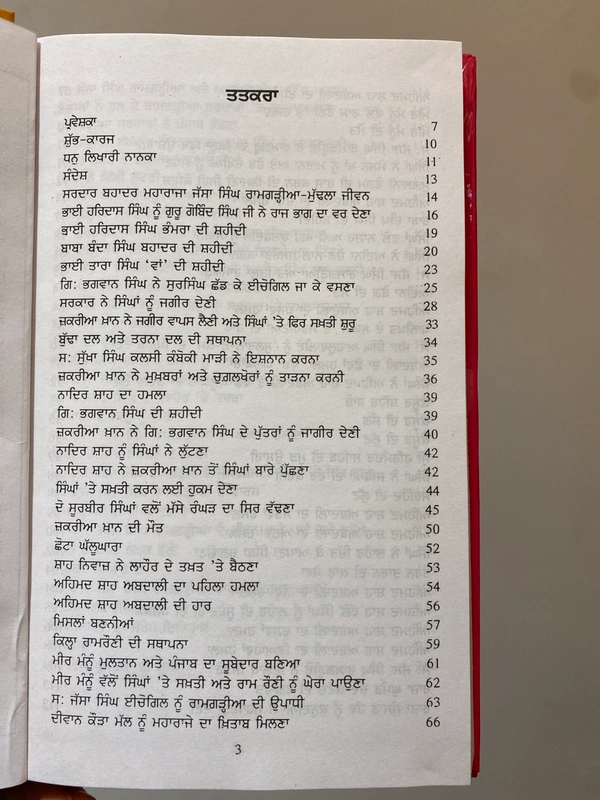 ਤਤਕਰਾ
ਪ੍ਰਵੇਸ਼ਕਾ 7
ਸ਼ੁੱਭ-ਕਾਰਜ 10
ਧਨੁ ਲਿਖਾਰੀ ਨਾਨਕਾ 11
ਸੰਦੇਸ਼ 13
ਸਰਦਾਰ ਬਹਾਦਰ ਮਹਾਰਾਜਾ ਜੱਸਾ ਸਿੰਘ ਰਾਮਗੜ੍ਹੀਆ-ਮੁੱਢਲਾ ਜੀਵਨ 14
ਭਾਈ ਹਰਿਦਾਸ ਸਿੰਘ ਨੂੰ ਗੁਰੂ ਗੋਬਿੰਦ ਸਿੰਘ ਜੀ ਨੇ ਰਾਜ ਭਾਗ ਦਾ ਵਰ ਦੇਣਾ 16
ਭਾਈ ਹਰਿਦਾਸ ਸਿੰਘ ਭੰਮਰਾ ਦੀ ਸ਼ਹੀਦੀ 19
ਬਾਬਾ ਬੰਦਾ ਸਿੰਘ ਬਹਾਦਰ ਦੀ ਸ਼ਹੀਦੀ 20
ਭਾਈ ਤਾਰਾ ਸਿੰਘ 'ਵਾਂ' ਦੀ ਸ਼ਹੀਦੀ 23
ਗਿ: ਭਗਵਾਨ ਸਿੰਘ ਨੇ ਸੁਰਸਿੰਘ ਛੱਡ ਕੇ ਈਚੋਗਿਲ ਜਾ ਕੇ ਵਸਣਾ 25
ਸਰਕਾਰ ਨੇ ਸਿੰਘਾਂ ਨੂੰ ਜਗੀਰ ਦੇਣੀ 28
ਜ਼ਕਰੀਆ ਖ਼ਾਨ ਨੇ ਜਗੀਰ ਵਾਪਸ ਲੈਣੀ ਅਤੇ ਸਿੰਘਾਂ 'ਤੇ ਫਿਰ ਸਖ਼ਤੀ ਸ਼ੁਰੂ 33
ਬੁੱਢਾ ਦਲ ਅਤੇ ਤਰਨਾ ਦਲ ਦੀ ਸਥਾਪਨਾ 34
ਸ: ਸੁੱਖਾ ਸਿੰਘ ਕਲਸੀ ਕੰਬੋਕੀ ਮਾੜੀ ਨੇ ਇਸ਼ਨਾਨ ਕਰਨਾ 35
ਜ਼ਕਰੀਆ ਖ਼ਾਨ ਨੇ ਮੁਖ਼ਬਰਾਂ ਅਤੇ ਚੁਗ਼ਲਖੋਰਾਂ ਨੂੰ ਤਾੜਨਾ ਕਰਨੀ 36
ਨਾਦਿਰ ਸ਼ਾਹ ਦਾ ਹਮਲਾ 39
ਗਿ: ਭਗਵਾਨ ਸਿੰਘ ਦੀ ਸ਼ਹੀਦੀ 39
ਜ਼ਕਰੀਆ ਖ਼ਾਨ ਨੇ ਗਿ: ਭਗਵਾਨ ਸਿੰਘ ਦੇ ਪੁੱਤਰਾਂ ਨੂੰ ਜਾਗੀਰ ਦੇਣੀ 40
ਨਾਦਿਰ ਸ਼ਾਹ ਨੂੰ ਸਿੰਘਾਂ ਨੇ ਲੁੱਟਣਾ 42
ਨਾਦਿਰ ਸ਼ਾਹ ਨੇ ਜ਼ਕਰੀਆ ਖ਼ਾਨ ਤੋਂ ਸਿੰਘਾਂ ਬਾਰੇ ਪੁੱਛਣਾ 42
ਸਿੰਘਾਂ 'ਤੇ ਸਖ਼ਤੀ ਕਰਨ ਲਈ ਹੁਕਮ ਦੇਣਾ 44
ਦੋ ਸੂਰਬੀਰ ਸਿੰਘਾਂ ਵਲੋਂ ਮੱਸੇ ਰੰਘੜ ਦਾ ਸਿਰ ਵੱਢਣਾ 45
ਜ਼ਕਰੀਆ ਖ਼ਾਨ ਦੀ ਮੌਤ 50
ਛੋਟਾ ਘੱਲੂਘਾਰਾ 52
ਸ਼ਾਹ ਨਿਵਾਜ਼ ਨੇ ਲਾਹੌਰ ਦੇ ਤਖ਼ਤ 'ਤੇ ਬੈਠਣਾ 53
ਅਹਿਮਦ ਸ਼ਾਹ ਅਬਦਾਲੀ ਦਾ ਪਹਿਲਾ ਹਮਲਾ 54
ਅਹਿਮਦ ਸ਼ਾਹ ਅਬਦਾਲੀ ਦੀ ਹਾਰ 56
ਮਿਸਲਾਂ ਬਣਨੀਆਂ 57
ਕਿਲ੍ਹਾ ਰਾਮਰੌਣੀ ਦੀ ਸਥਾਪਨਾ 59
ਮੀਰ ਮੰਨੂੰ ਮੁਲਤਾਨ ਅਤੇ ਪੰਜਾਬ ਦਾ ਸੂਬੇਦਾਰ ਬਣਿਆ 61
ਮੀਰ ਮੰਨੂੰ ਵੱਲੋਂ ਸਿੰਘਾਂ 'ਤੇ ਸਖ਼ਤੀ ਅਤੇ ਰਾਮ ਰੌਣੀ ਨੂੰ ਘੇਰਾ ਪਾਉਣਾ 62
ਸ: ਜੱਸਾ ਸਿੰਘ ਈਚੋਗਿਲ ਨੂੰ ਰਾਮਗੜ੍ਹੀਆ ਦੀ ਉਪਾਧੀ 63
ਦੀਵਾਨ ਕੌੜਾ ਮੱਲ ਨੂੰ ਮਹਾਰਾਜੇ ਦਾ ਖ਼ਿਤਾਬ ਮਿਲਣਾ 66
3